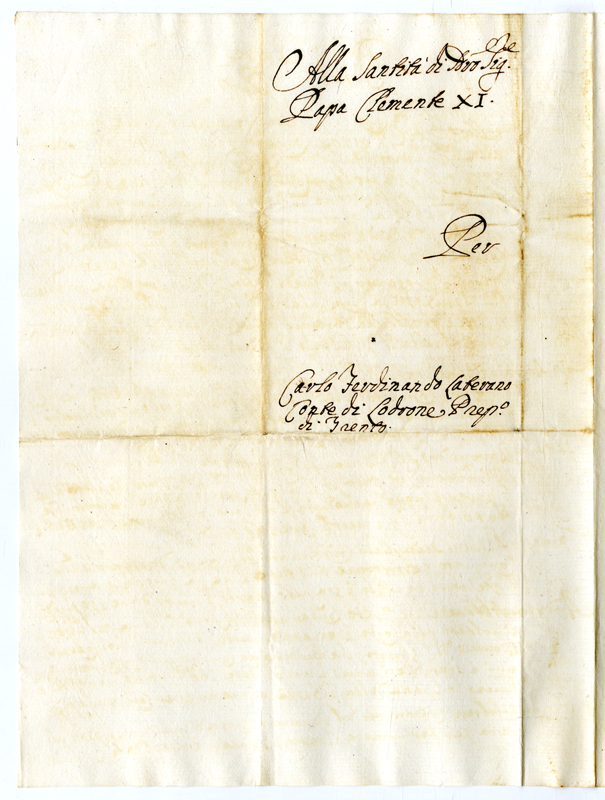 Alla Santità di Nrō Sig.re
Papa Clemente XI.
Per
Carlo Ferdinando Laterano
Conte di Lodrone Prep.o
di Trento.